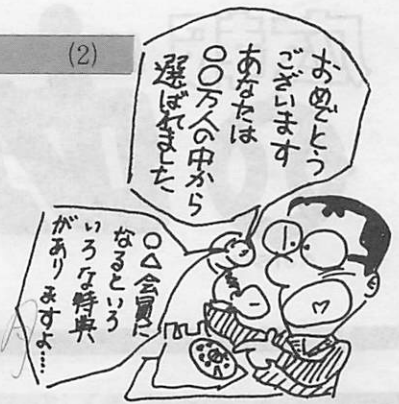 (2)
おめでとう
ございます
あなたは
○○万人の中から
選ばれました
○△会員に
なるといろ
いろな特典
があり ますよ……